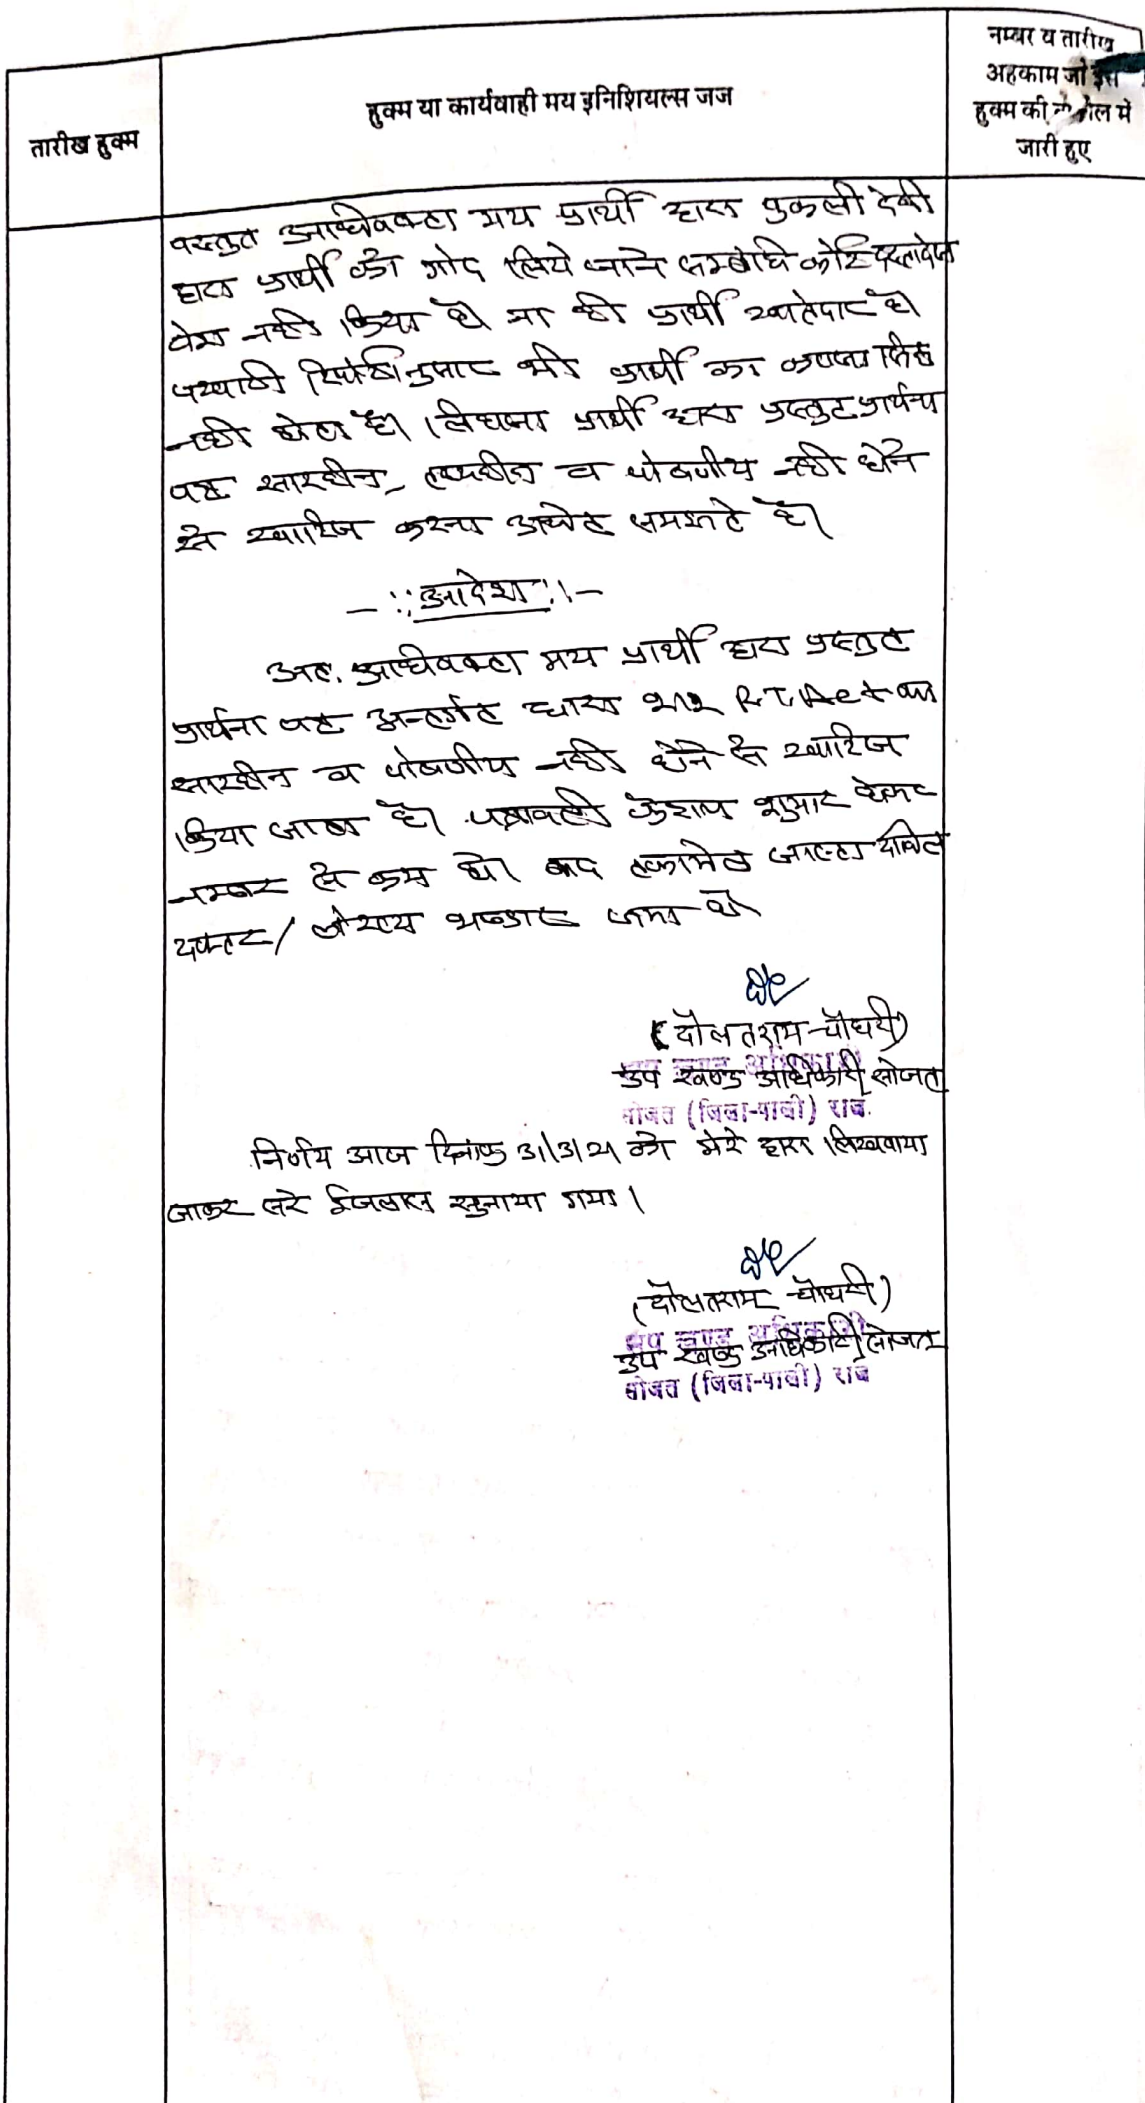 नम्बर व तारीख
अहकाम जो इस
हुक्म की में
जारी हुए
हुक्म या कार्यवाही मय इनिशियल्स जज
तारीख हुक्म
प्रस्तुत अधिवक्ता मय प्रार्थी द्वारा देवी
द्वारा प्रार्थी को गोद लिये जाने सम्बंधि कोई दस्तावेज
पेश नही किया है ना ही प्रार्थी खातेदार है।
पटवारी रिपोर्टानुसार भी प्रार्थी का कब्जा सिद्ध
नही होता है। लिहाजा प्रार्थी द्वारा प्रस्तुत प्रार्थना
पत्र सारहीन, तथ्यहीन व पोषणीय नही होने
से खारिज करना उचित समझते है।
- :: आदेश :: -
अत. अधिवक्ता मय प्रार्थी द्वारा प्रस्तुत
प्रार्थना पत्र अन्तर्गत धारा 212 R.T.Act का
सारहीन व पोषणीय नही होने से खारिज
किया जाता है। पत्रावली फैशल शुमार होकर
नम्बर से कम हो। बाद तकमील जाब्ता दाखिल
दफ्तर / भण्डार जमा हो
(दौलतराम चौधरी)
उप खण्ड अधिकारी सोजत
उप खण्ड अधिकारी
सोजत (जिला-पाली) राज.
निर्णय आज दिनांक 31/3/21 को मेरे द्वारा लिखवाया
जाकर सरे ईजलास सुनाया गया।
(दौलतराम चौधरी)
उप खण्ड अधिकारी
उप खण्ड अधिकारी सोजत
सोजत (जिला-पाली) राज